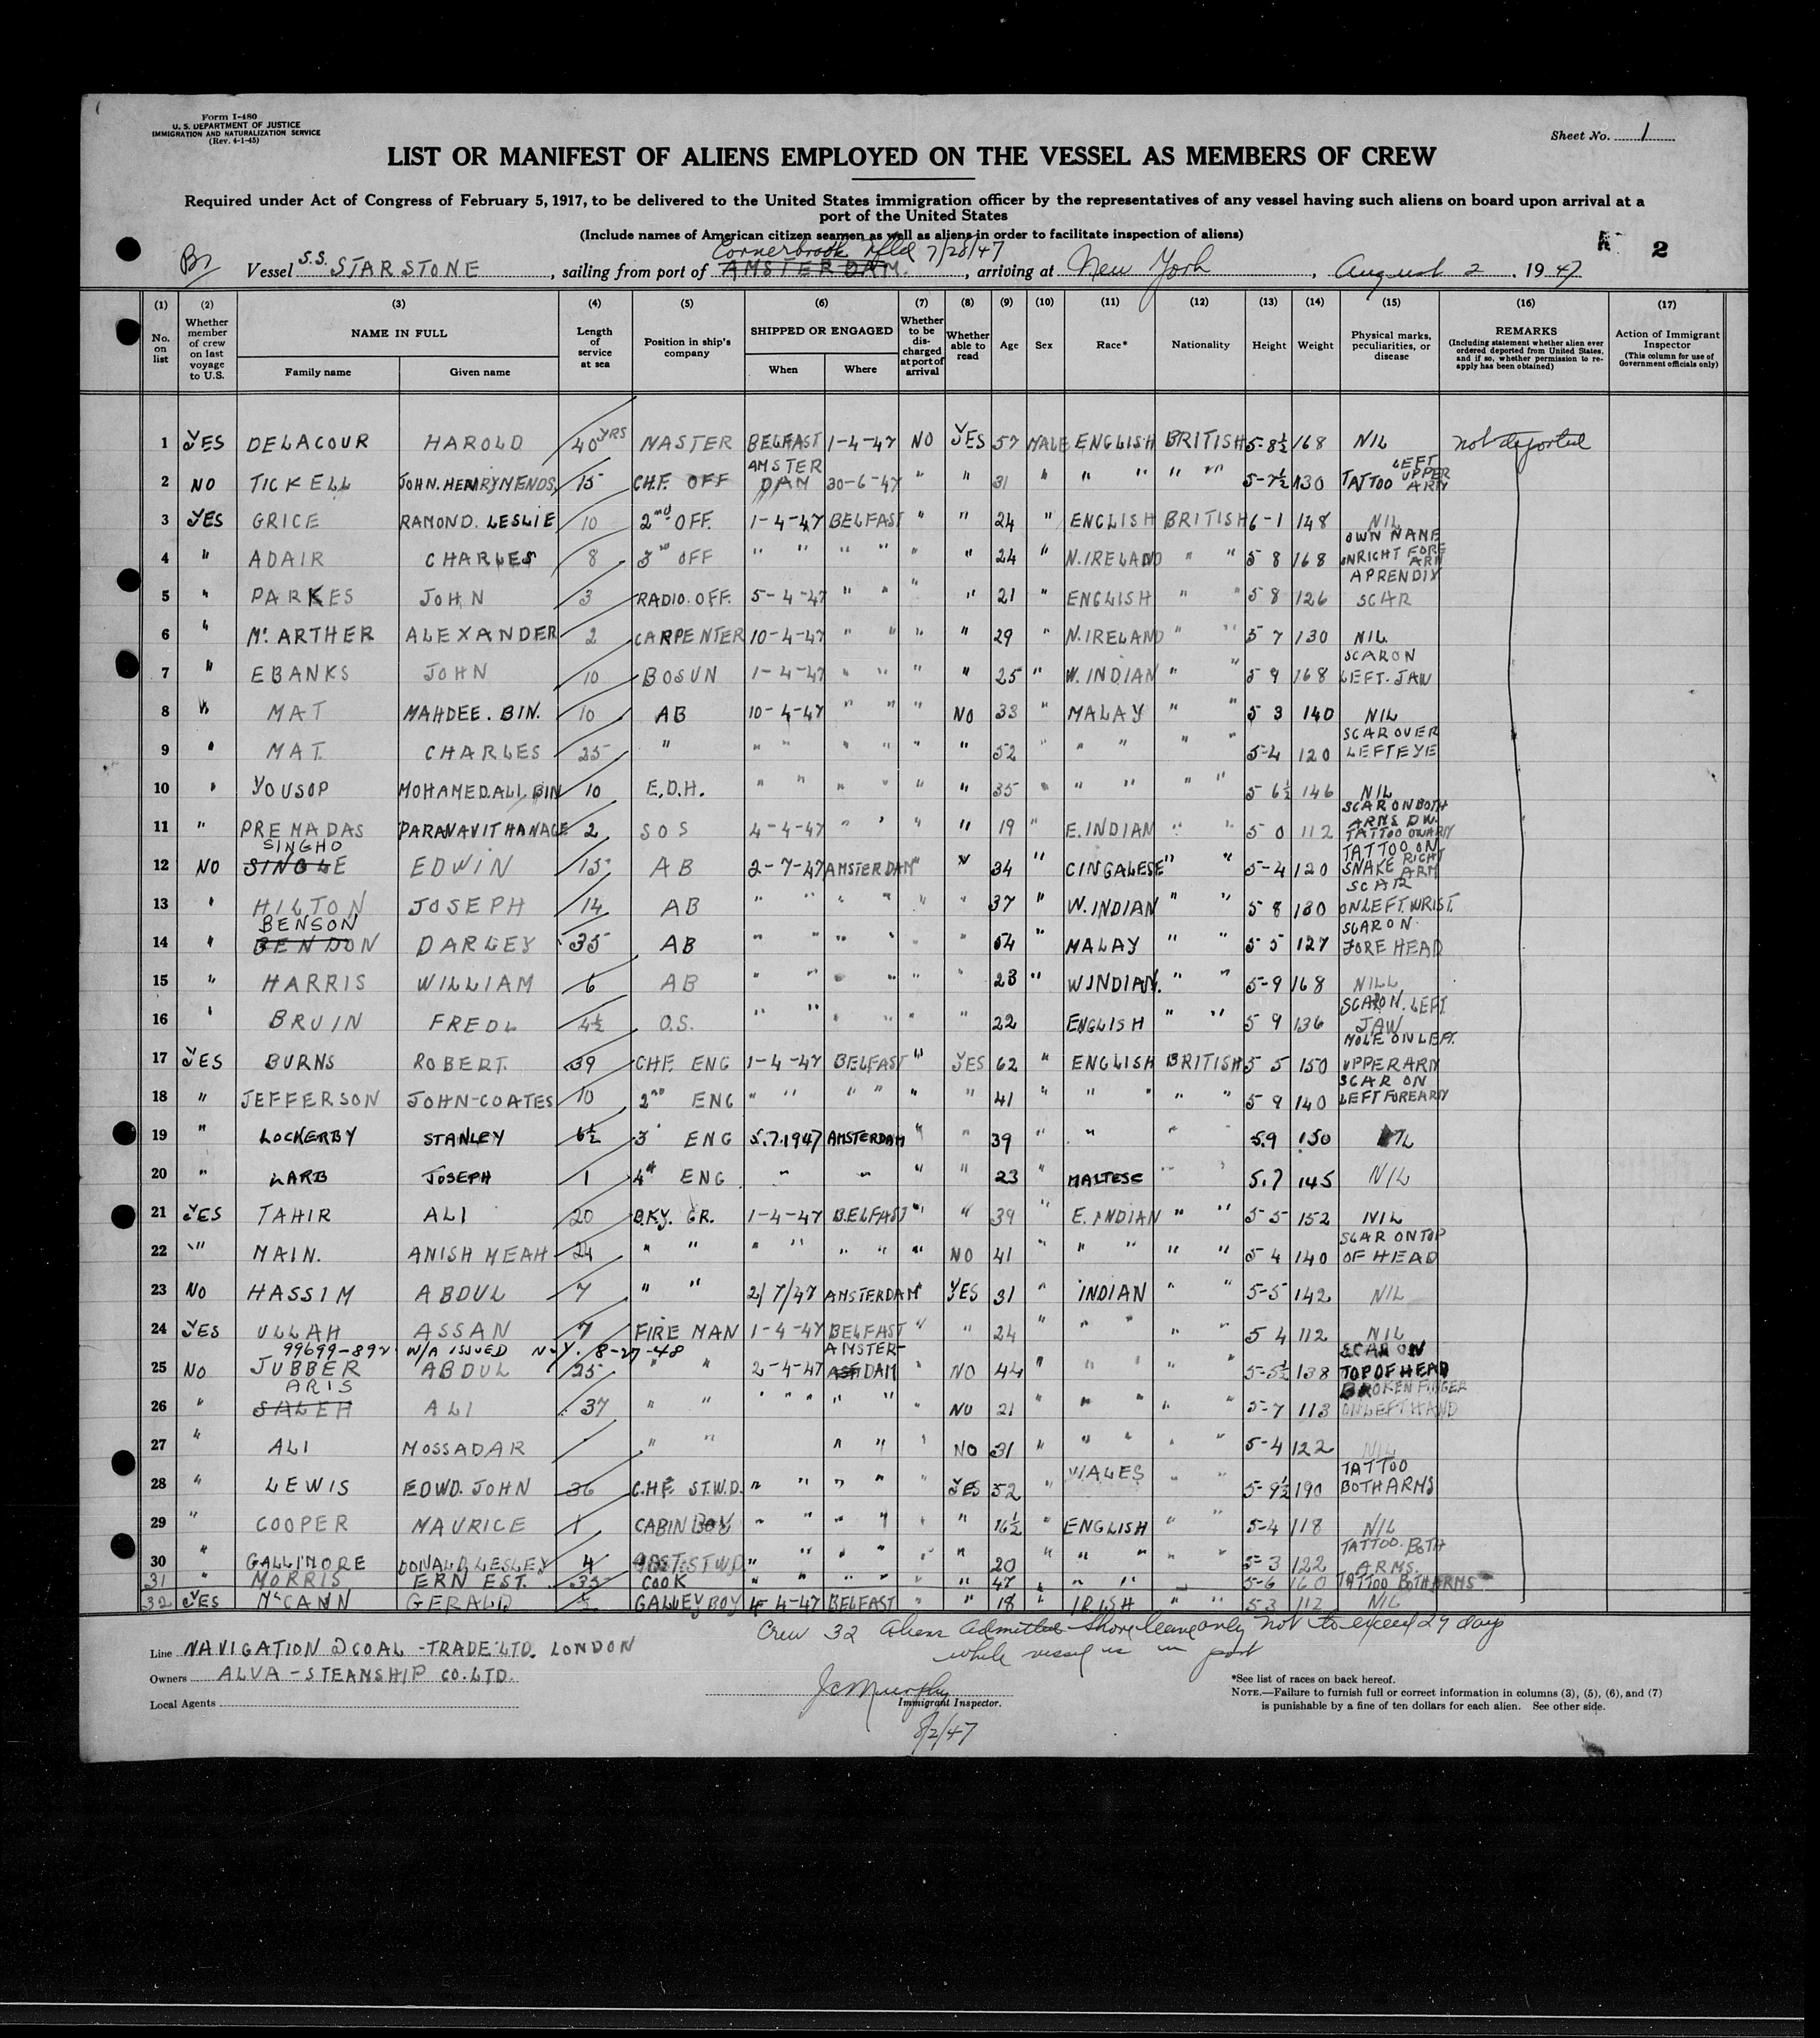 Form I-480
U. S. DEPARTMENT OF JUSTICE
IMMIGRATION AND NATURALIZATION SERVICE
(Rev. 4-1-45)
Sheet No. 1
LIST OR MANIFEST OF ALIENS EMPLOYED ON THE VESSEL AS MEMBERS OF CREW
Required under Act of Congress of February 5, 1917, to be delivered to the United States immigration officer by the representatives of any vessel having such aliens on board upon arrival at a
port of the United States
(Include names of American citizen seamen as well as aliens in order to facilitate inspection of aliens)
2
Cornerbrook Nfld 7/28/47
Br Vessel S.S. STARSTONE, sailing from port of AMSTERDAM., arriving at New York, August 2, 1947
(1) (2) (3) (4) (5) (6) (7) (8) (9) (10) (11) (12) (13) (14) (15) (16) (17)
No. on list Whether member of crew on last voyage to U.S. NAME IN FULL Family name Given name Length of service at sea Position in ship's company SHIPPED OR ENGAGED When Where Whether to be discharged at port of arrival Whether able to read Age Sex Race* Nationality Height Weight Physical marks, peculiarities, or disease REMARKS (Including statement whether alien ever ordered deported from United States, and if so, whether permission to reapply has been obtained) Action of Immigrant Inspector (This column for use of Government officials only)
1 YES DELACOUR HAROLD 40 YRS MASTER BELFAST 1-4-47 NO YES 57 MALE ENGLISH BRITISH 5-8½ 168 NIL not deported
2 NO TICKELL JOHN. HENRY MENDS, 15 CHF. OFF AMSTER DAM 30-6-47 " " 31 " " " " " 5-7½ 130 TATTOO LEFT UPPER ARM
3 YES GRICE RAMOND. LESLIE 10 2nd OFF. 1-4-47 BELFAST " " 24 " ENGLISH BRITISH 6-1 148 NIL
4 " ADAIR CHARLES 8 3rd OFF " " " " " " 24 " N. IRELAND " " 5 8 168 OWN NAME ON RIGHT FORE ARM
5 " PARKES JOHN 3 RADIO. OFF. 5-4-47 " " " " 21 " ENGLISH " " 5 8 126 APPENDIX SCAR
6 " Mc ARTHER ALEXANDER 2 CARPENTER 10-4-47 " " " " 29 " N. IRELAND " " 5 7 130 NIL
7 " EBANKS JOHN 10 BOSUN 1-4-47 " " " " 25 " W. INDIAN " " 5 9 168 SCAR ON LEFT. JAW
8 " MAT MAHDEE. BIN. 10 AB 10-4-47 " " " NO 33 " MALAY " " 5 3 140 NIL
9 " MAT. CHARLES 25 " " " " " " " 52 " " " " " 5-4 120 SCAR OVER LEFT EYE
10 " YOUSOP MOHAMED. ALI. BIN 10 E.D.H. " " " " " " 35 " " " " " 5 6½ 146 NIL
11 " PREMADAS PARANAVITHANAGE 2 SOS 4-4-47 " " " " 19 " E. INDIAN " " 5 0 112 SCAR ON BOTH ARMS D.W. TATTOO ON ARM
12 NO SINGHO SINGLE EDWIN 15 AB 2-7-47 AMSTERDAM " " 34 " CINGALESE " " 5-4 120 TATTOO ON SNAKE RIGHT ARM
13 " HILTON JOSEPH 14 AB " " " " " " 37 " W. INDIAN " " 5 8 130 SCAR ON LEFT. WRIST.
14 " BENSON BENDON DARLEY 35 AB " " " " " " 54 " MALAY " " 5 5 127 SCAR ON FORE HEAD
15 " HARRIS WILLIAM 6 AB " " " " " 23 " W. INDIAN. " " 5-9 168 NILL
16 " BRUIN FREDL 4½ O.S. " " " " " " 22 ENGLISH " " 5 9 136 SCAR ON. LEFT JAW
17 YES BURNS ROBERT. 39 CHF. ENG 1-4-47 BELFAST " YES 62 " ENGLISH BRITISH 5 5 150 MOLE ON LEFT. UPPER ARM
18 " JEFFERSON JOHN-COATES 10 2nd ENG " " " " " " 41 " " " " " 5 9 140 SCAR ON LEFT FOREARM
19 " LOCKERBY STANLEY 6½ 3 ENG 5.7.1947 AMSTERDAM " " 39 " " " " 5.9 150 NIL
20 " LARB JOSEPH 1 4th ENG " " " " 23 " MALTESE " " 5.7 145 NIL
21 YES TAHIR ALI 20 D.KY. GR. 1-4-47 BELFAST " " 39 " E. INDIAN " " 5-5 152 NIL
22 " MAIN. ANISH MEAH 24 " " " " " " " NO 41 " " " " " 5 4 140 SCAR ON TOP OF HEAD
23 NO HASSIM ABDUL 7 " " 2/7/47 AMSTERDAM " YES 31 " INDIAN " " 5-5 142 NIL
24 YES ULLAH ASSAN 7 FIRE MAN 1-4-47 BELFAST " " 24 " " " " " 5 4 112 NIL
99699-892 W/A ISSUED N.Y. 8-27-48
25 NO JUBBER ABDUL 25 " " 2-4-47 AMSTER-DAM NO 44 " " " " " 5-5½ 138 SCAR ON TOP OF HEAD
26 " ARIS SALEH ALI 37 " " " " " " " NO 21 " " " " " 5-7 113 BROKEN FINGER ON LEFT HAND
27 " ALI MOSSADAR " " " " " NO 31 " " " " " 5-4 122 NIL
28 " LEWIS EDWD. JOHN 36 C.HF. ST.W.D. " " " " " YES 52 " WALES " " 5-9½ 190 TATTOO BOTH ARMS
29 " COOPER MAURICE 1 CABIN BOY " " " " " " 16½ " ENGLISH " " 5-4 118 NIL
30 " GALLIMORE DONALD. LESLEY 4 ST.W.D. " " " " " " 20 " " " " " 5-3 122 TATTOO. BOTH ARMS.
31 " MORRIS ERN EST. 35 COOK " " " " " " 47 " " " " 5-6 160 TATTOO BOTH ARMS
32 YES McCANN GERALD ½ GALLEY BOY 4-4-47 BELFAST " " 18 " IRISH " " 5-3 112 NIL
Crew 32 Aliens Admitted shore leave only not to exceed 29 days
while vessel is in port
Line NAVIGATION & COAL-TRADE LTD. LONDON
Owners ALVA-STEAMSHIP CO. LTD.
Local Agents
JC Murphy
Immigrant Inspector.
8/2/47
*See list of races on back hereof.
NOTE.—Failure to furnish full or correct information in columns (3), (5), (6), and (7)
is punishable by a fine of ten dollars for each alien. See other side.